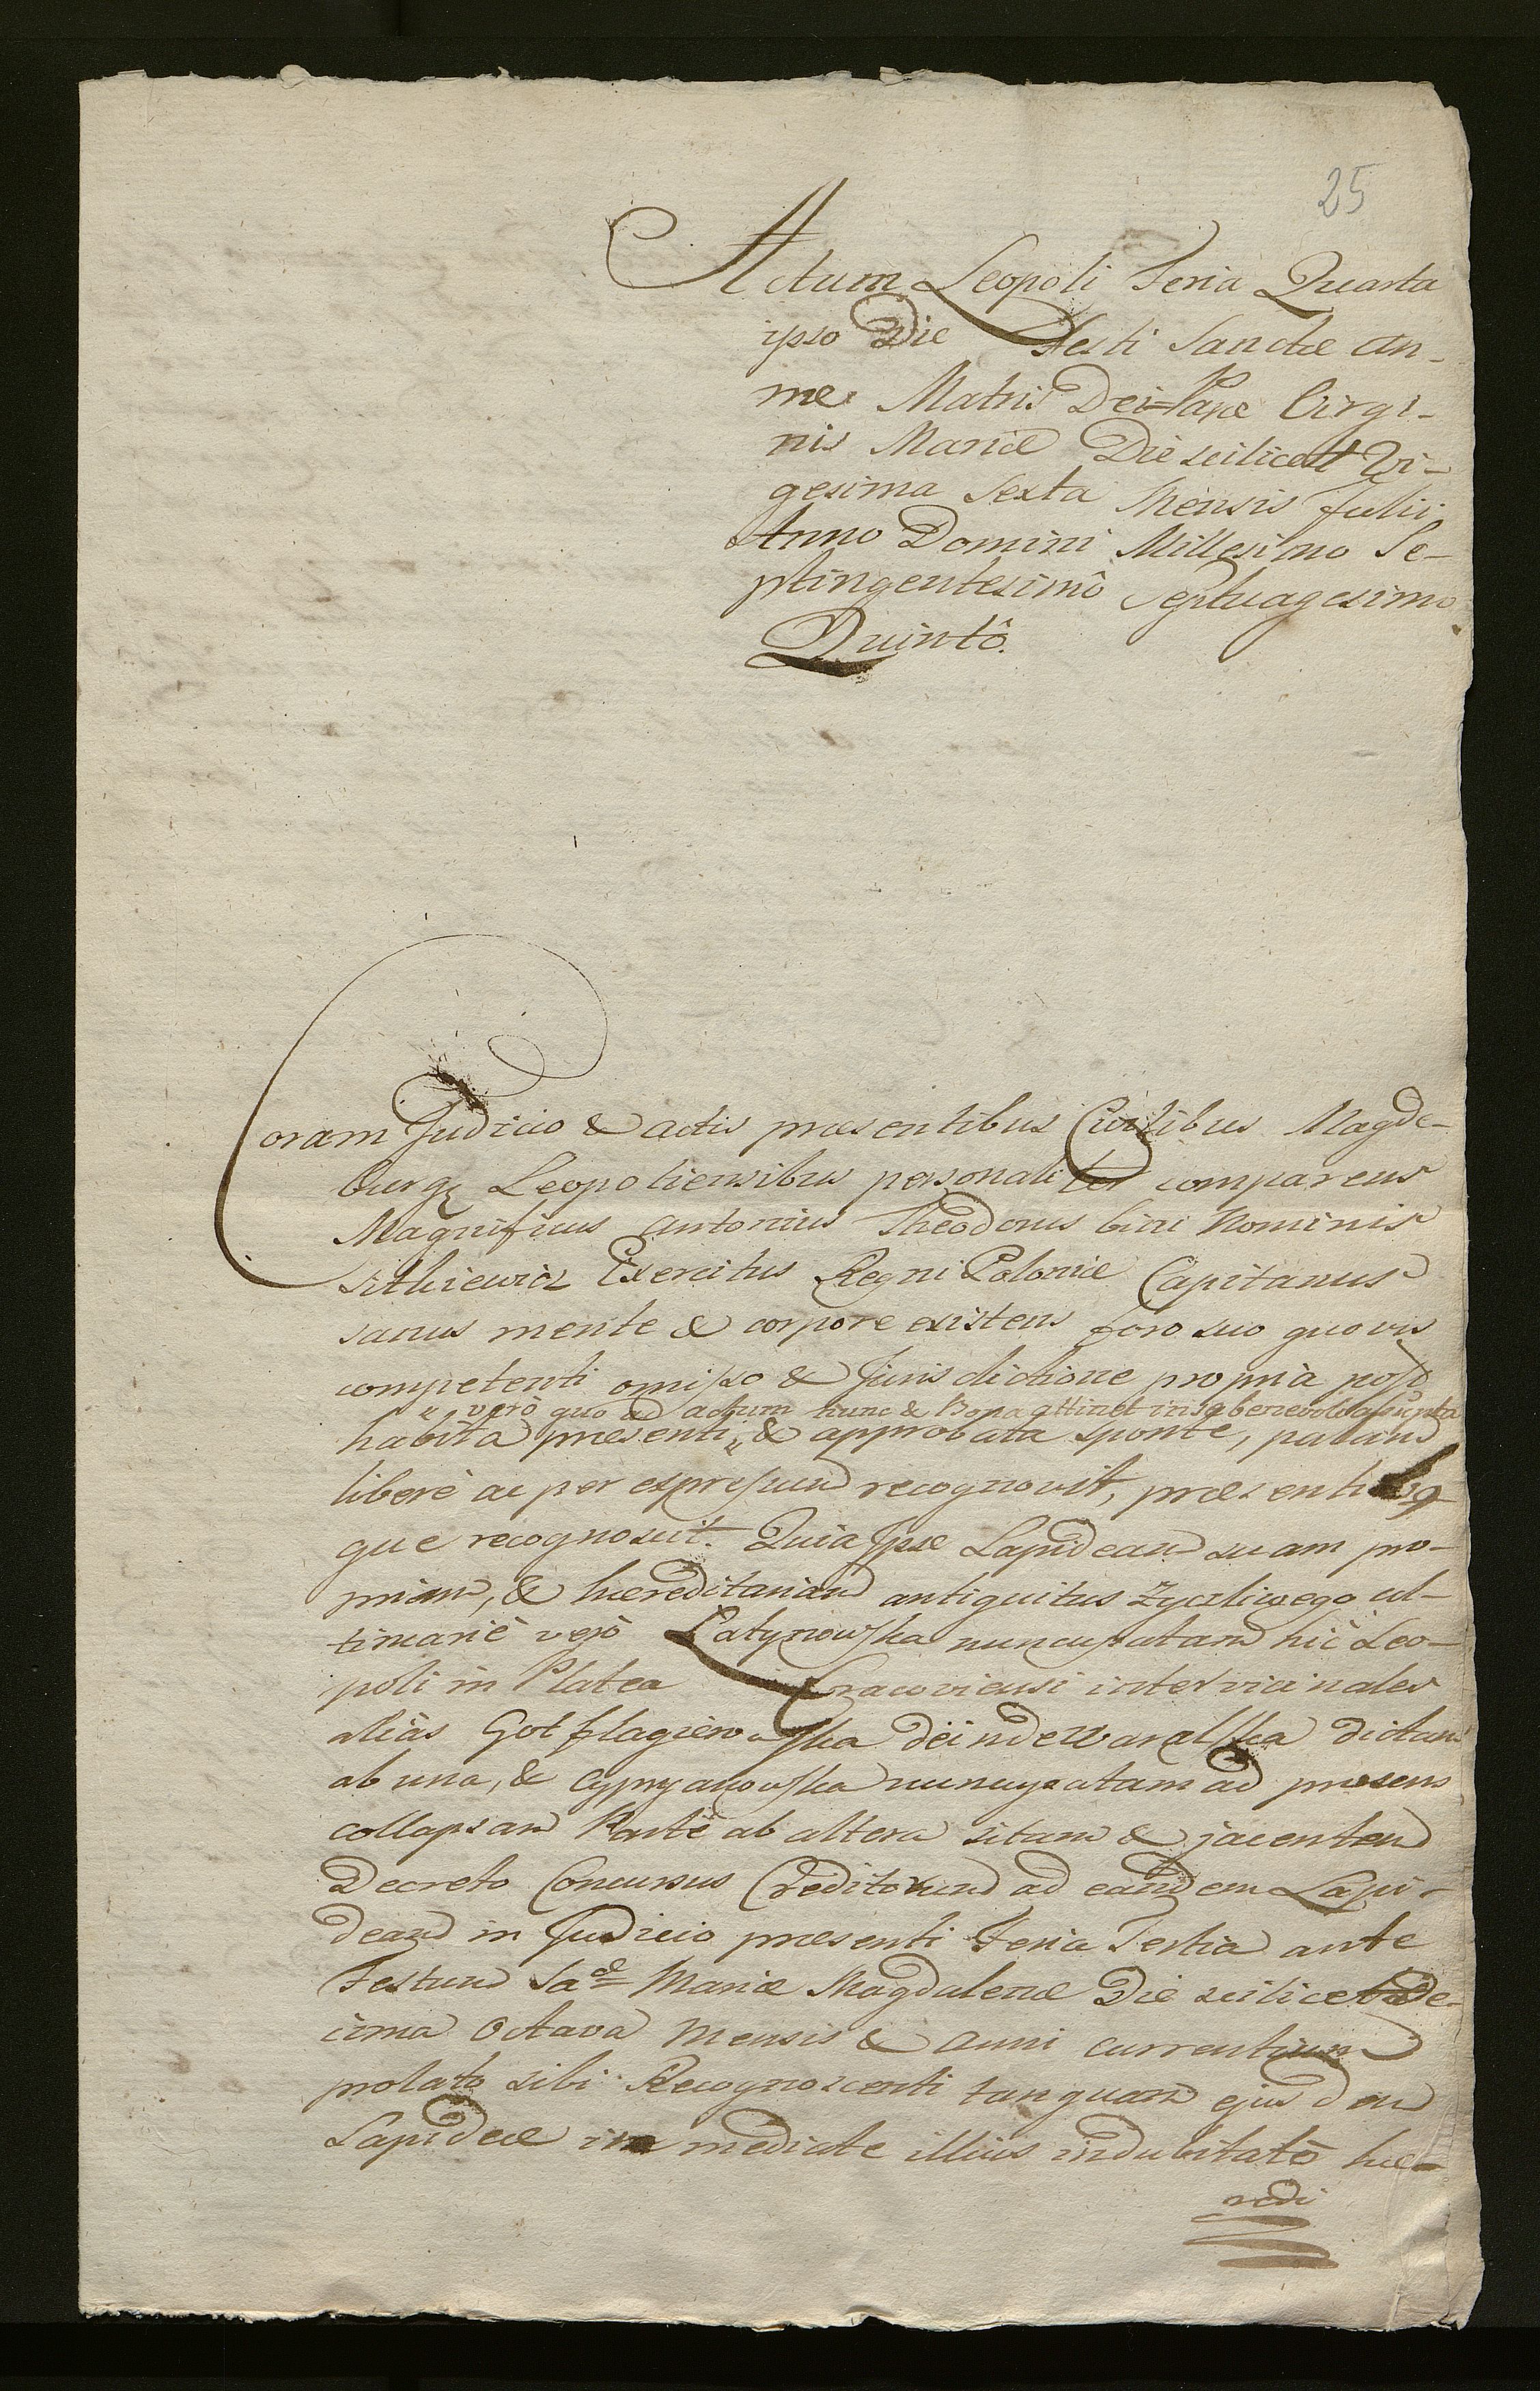 25
Actum Leopoli Feria Quarta
ipso Die Festi Sanctæ An-
næ Matris Dei-Paræ Virgi-
nis Mariæ Die scilicet Vi-
gesima Sexta Mensis Julii
Anno Domini Millesimo Se-
ptingentesimô Septuagesimo
Quintô.
Coram Judicio & actis præsentibus Civilibus Magde-
burg Leopoliensibus personaliter comparens
Magnificus Antonius Theodorus bini Nominis
Sitkiewicz Exercitus Regni Poloniæ Capitanus
sanus mente & corpore existens foro suo quovis
competenti omisso & Jurisdictione propria post
" verò quo ad actum hunc & Bona attinet benevole assumpta
habita præsenti " & approbata sponte, palam
liberè ac per expressum recognovit, præsentibq
que recognoscit. Quia Ipse Lapideam suam pro-
priam, & hæreditariam antiquitus Zyczliwego ul-
timariè verò Latynowska nuncupatam hic Leo-
poli in Platea Cracoviensi inter vicinales
aliàs Gotflagierowska deinde Waralska dictam
ab una, & Cypryanowska nuncupatam ad præsens
collapsam Parte ab altera sitam & jacentem
Decreto Concursus Creditorum ad eandem Lapi-
deam in Judicio præsenti Feria Tertia ante
Festum Sæ Mariæ Magdalenæ Die scilicet De-
cima Octava Mensis & Anni currentium
prolato sibi Recognoscenti tanquam ejusdem
Lapideæ immediate illius indubitatô hæ-
redi